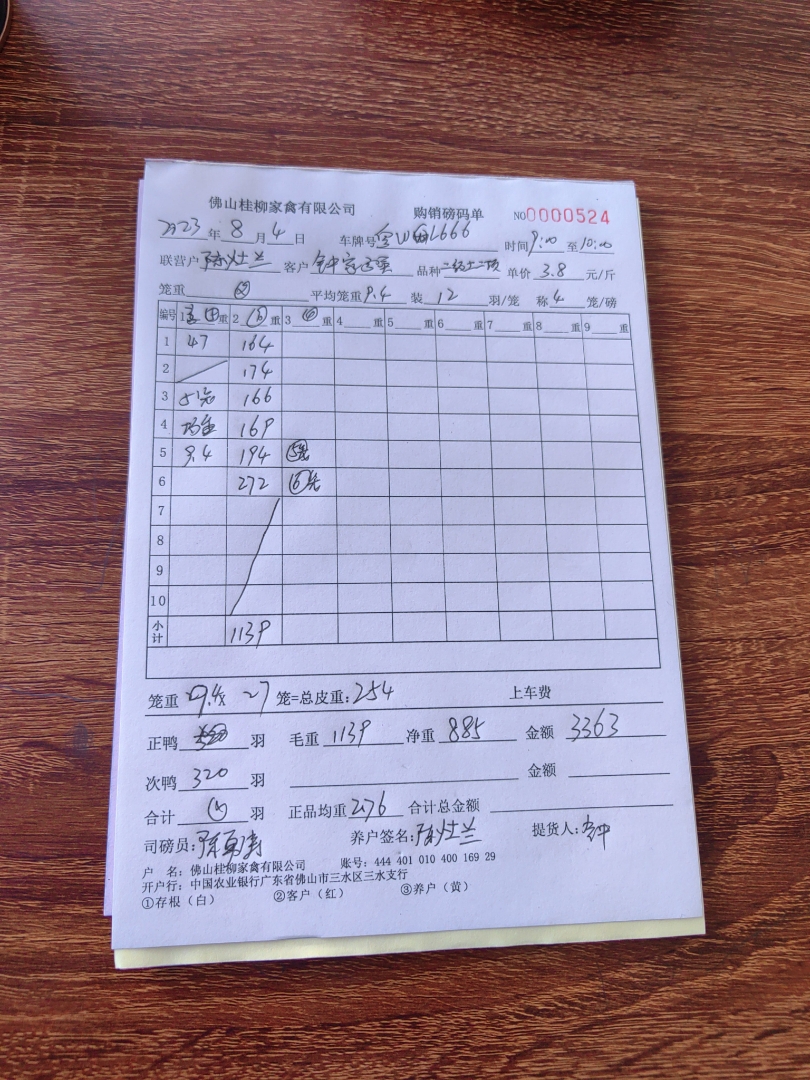 佛山桂柳家禽有限公司 购销磅码单 NO0000524
2023年8月4日 车牌号 L666 时间9:00至10:00
联营户 陈灶兰 客户 钟 品种 二级 单价3.8元/斤
笼重 平均笼重9.4 装12羽/笼 称4笼/磅
编号 1 重 2 重 3 重 4 重 5 重 6 重 7 重 8 重 9 重
1 47 164
2 174
3 5笼 166
4 均重 169
5 9.4 194 ⑤笼
6 272 ⑥笼
7
8
9
10
小计 1139
笼重 9.4x 27 笼=总皮重:254 上车费
正鸭 320 羽 毛重 1139 净重 885 金额 3363
次鸭 320 羽 金额
合计 羽 正品均重 2.76 合计总金额
司磅员: 陈 养户签名: 陈灶兰 提货人: 钟
户 名: 佛山桂柳家禽有限公司 账号: 444 401 010 400 169 29
开户行: 中国农业银行广东省佛山市三水区三水支行
①存根（白） ②客户（红） ③养户（黄）